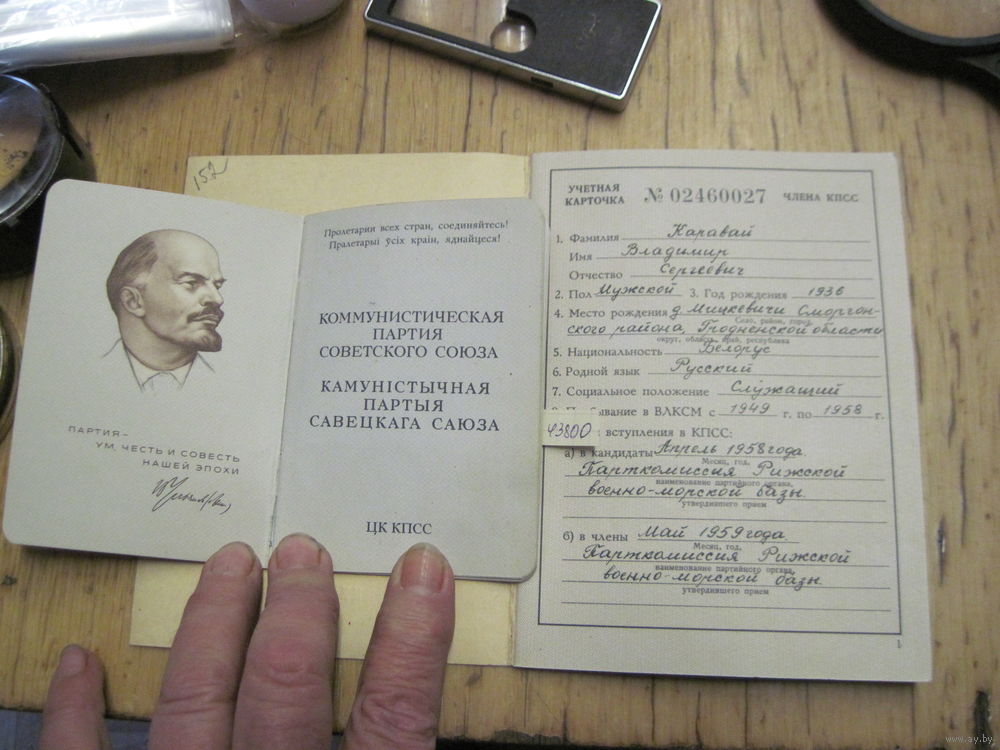 152
Пролетарии всех стран, соединяйтесь!
Пралетарыі ўсіх краін, яднайцеся!
КОММУНИСТИЧЕСКАЯ
ПАРТИЯ
СОВЕТСКОГО СОЮЗА
КАМУНІСТЫЧНАЯ
ПАРТЫЯ
САВЕЦКАГА САЮЗА
ЦК КПСС
ПАРТИЯ –
УМ, ЧЕСТЬ И СОВЕСТЬ
НАШЕЙ ЭПОХИ
УЧЕТНАЯ
КАРТОЧКА № 02460027 ЧЛЕНА КПСС
1. Фамилия Каравай
Имя Владимир
Отчество Сергеевич
2. Пол Мужской 3. Год рождения 1936
4. Место рождения д. Мицкевичи Сморгон-
Село, район, город,
ского района, Гродненской области
округ, область, край, республика
5. Национальность Белорус
6. Родной язык Русский
7. Социальное положение Служащий
в ВЛКСМ с 1949 г. по 1958 г.
43800
вступления в КПСС:
а) в кандидаты Апрель 1958 года.
Месяц, год,
Парткомиссия Рижской
наименование партийного органа,
военно-морской базы.
утвердившего прием
б) в члены Май 1959 года
Месяц, год,
Парткомиссия Рижской
наименование партийного органа,
военно-морской базы.
утвердившего прием
1
www.ay.by